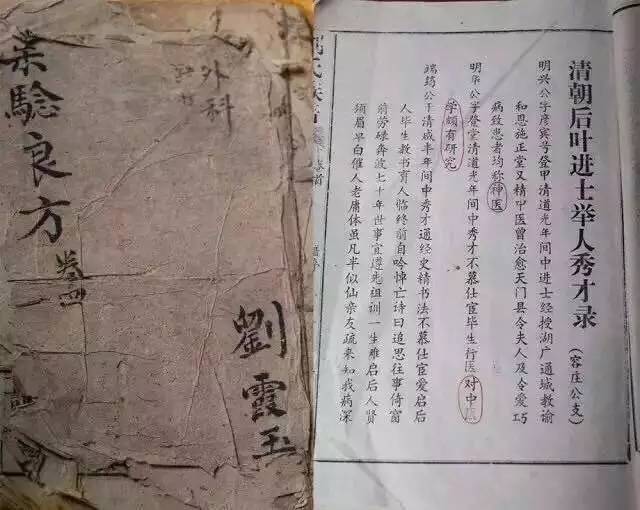 清朝后叶进士举人秀才录
(容庄公支)
明兴公字彦宾号登甲清道光年间中进士经授湖广通城教谕
和恩施正堂又精中医曾治愈天门县令夫人及令爱巧
病致患者均称神医
明华公字登堂清道光年间中秀才不慕仕宦毕生行医对中医
学颇有研究
筠公于清咸丰年间中秀才通经史精书法不慕仕宦爱启后
人毕生教书育人临终前自吟悼亡诗曰追思往事倚窗
前劳碌奔波七十年世事宜遵先祖训一生难启后人贤
须眉早白催人老庸体虽凡半似仙亲友疏来知我病深
外科
劉霞玉
集驗良方
卷四